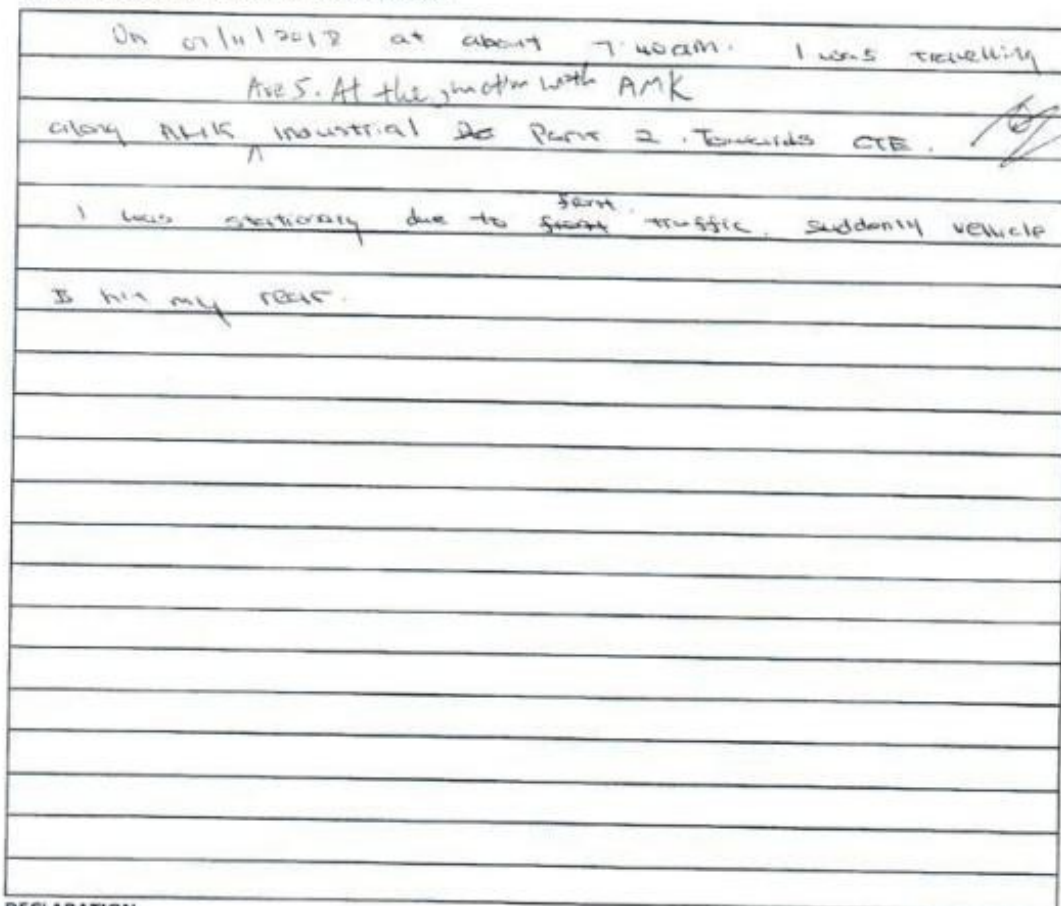 On 07/11/2018 at about 7.40am. I was travelling
Ave 5. At the junction with AMK
along AMK Industrial Park 2. Towards CTE.
front
I was stationary due to front traffic. Suddenly vehicle
B hit my rear.
DECLARATION